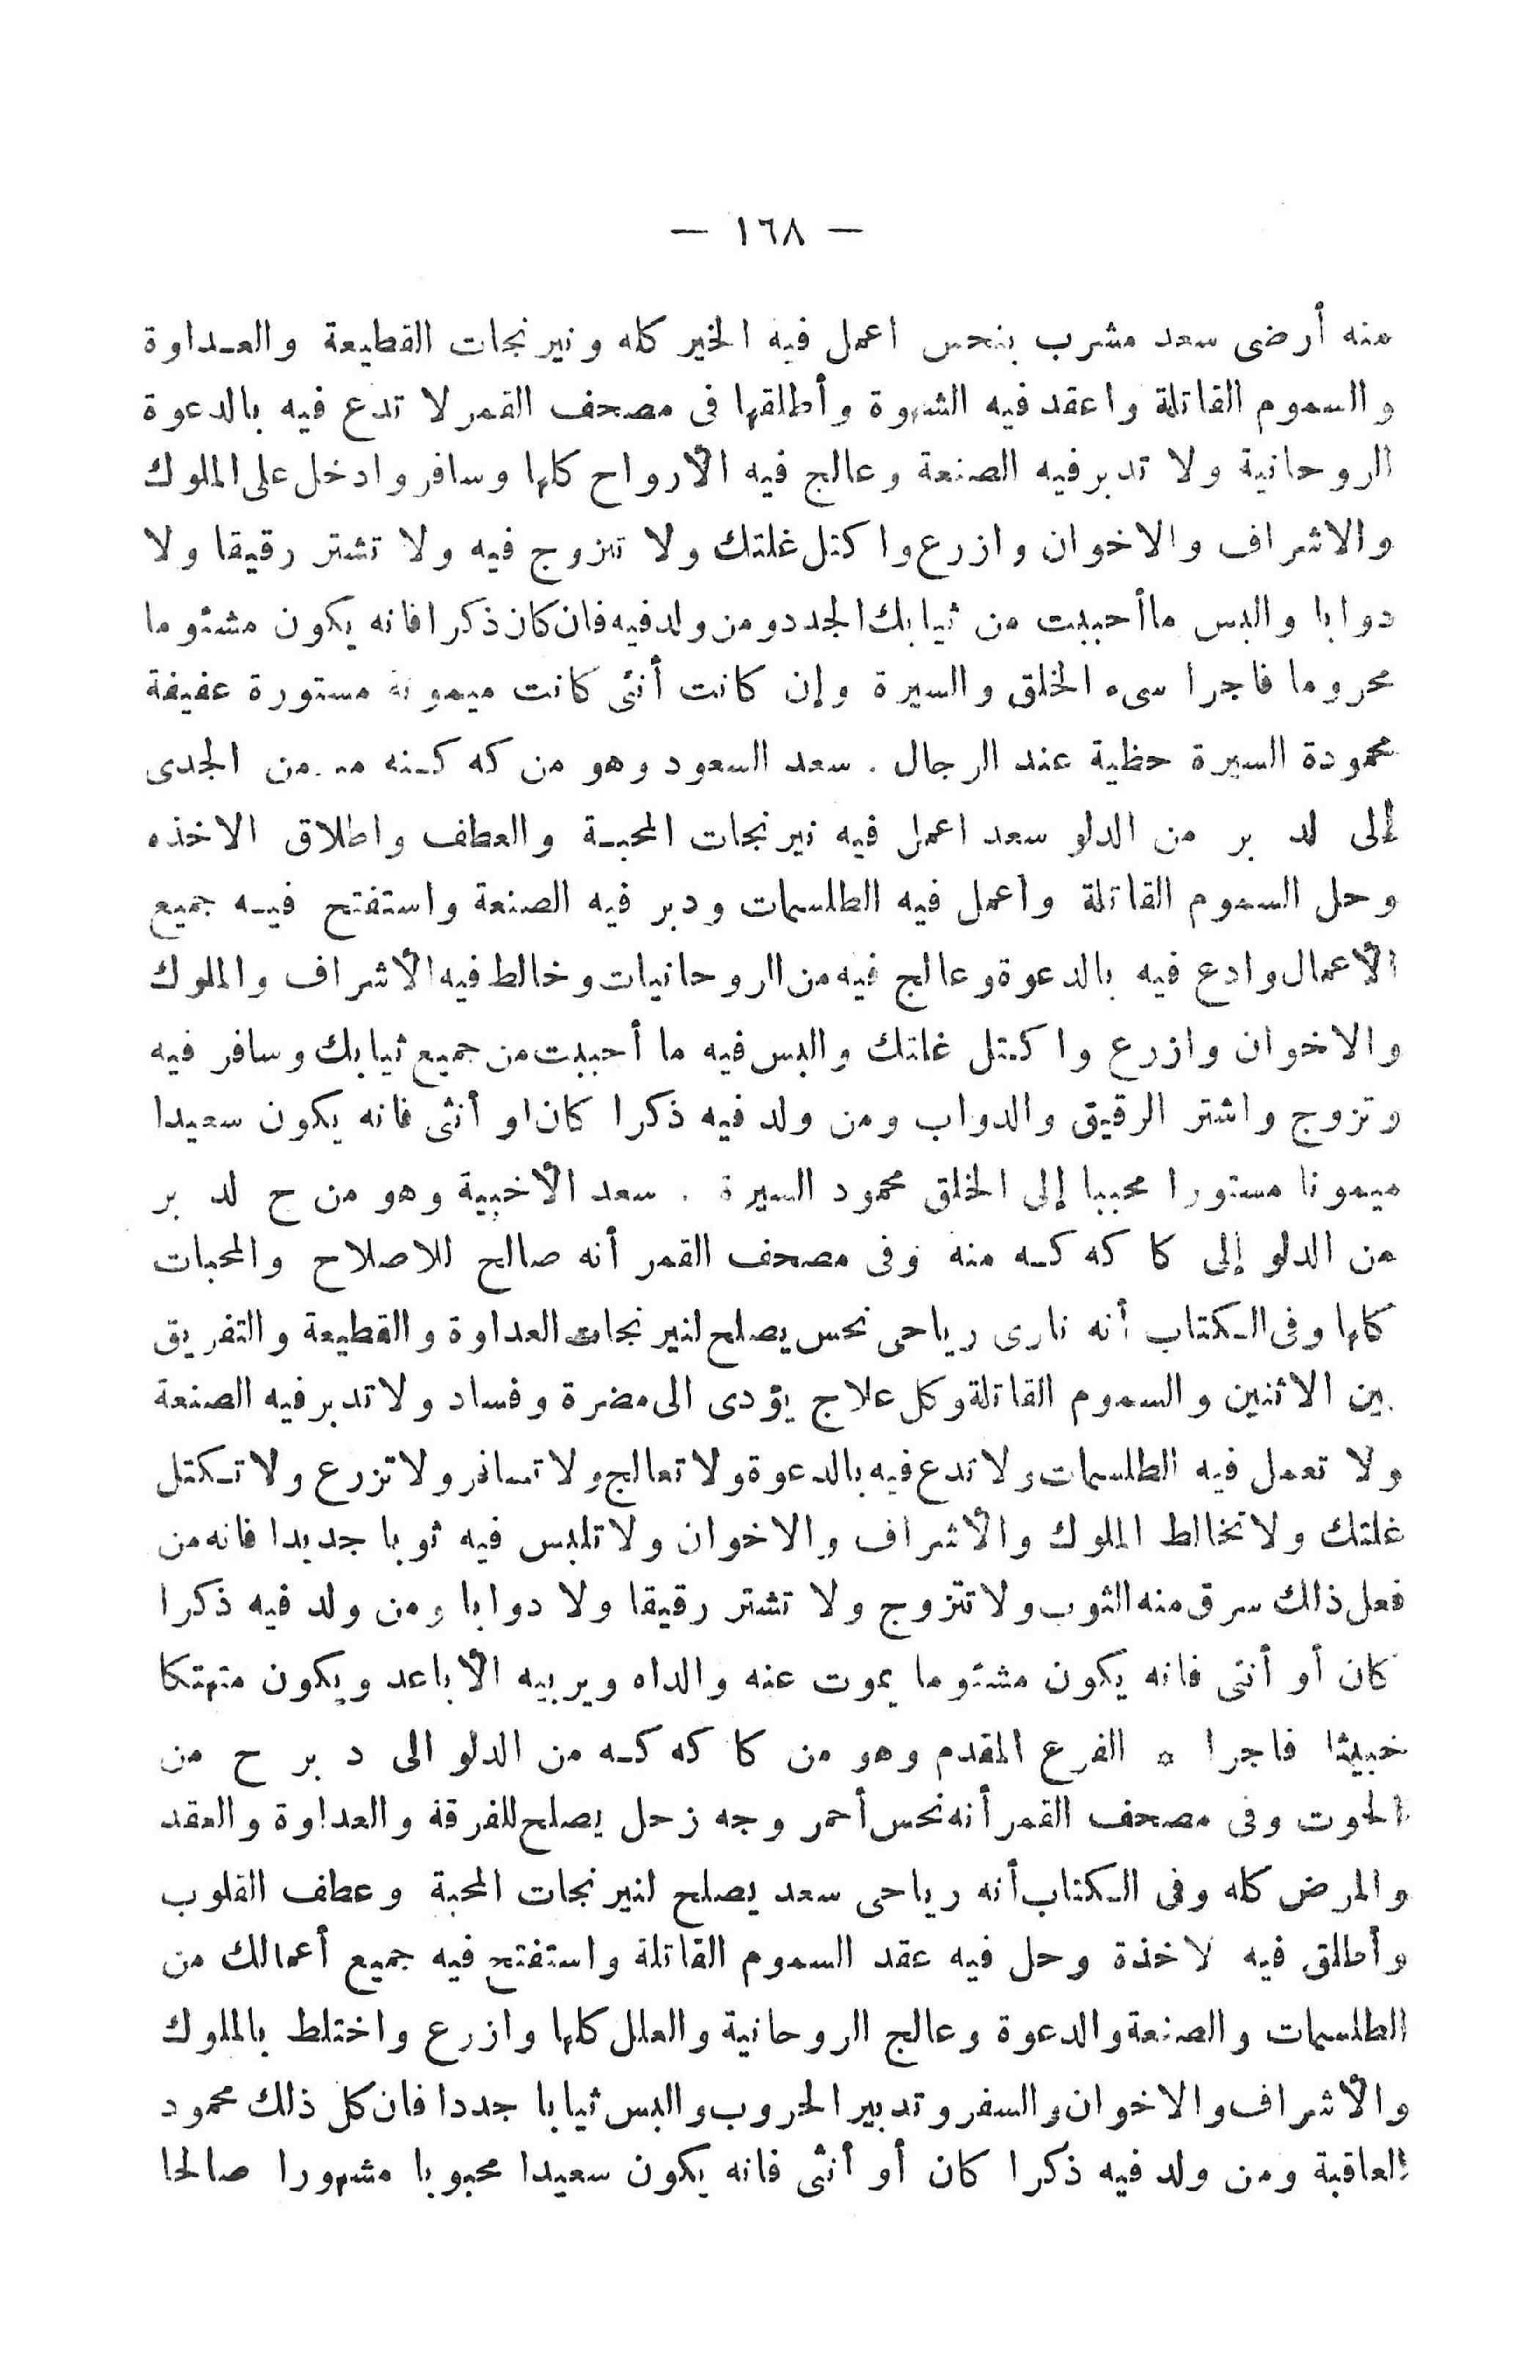 — ١٦٨ —
منه أرضى سعد مشرب بنحس اعمل فيه الخير كله ونيرنجات القطيعة والعداوة
والسموم القاتلة واعقد فيه الشهوة وأطلقها فى مصحف القمر لا تدع فيه بالدعوة
الروحانية ولا تدبر فيه الصنعة وعالج فيه الأرواح كلها وسافر وادخل على الملوك
والاشراف والاخوان وازرع واكتل غلتك ولا تتزوج فيه ولا تشتر رقيقا ولا
دوابا والبس ما أحببت من ثيابك الجدد ومن ولد فيه فان كان ذكرا فانه يكون مشئوما
محروما فاجرا سىء الخلق والسيرة وإن كانت أنثى كانت ميمونة مستورة عفيفة
محمودة السيرة حظية عند الرجال . سعد السعود وهو من كه كنه من الجدى
إلى لد بر من الدلو سعد اعمل فيه نيرنجات المحبة والعطف واطلاق الاخذه
وحل السموم القاتلة واعمل فيه الطلسمات ودبر فيه الصنعة واستفتح فيه جميع
الأعمال وادع فيه بالدعوة وعالج فيه من الروحانيات وخالط فيه الأشراف والملوك
والاخوان وازرع واكتل غلتك والبس فيه ما أحببت من جميع ثيابك وسافر فيه
وتزوج واشتر الرقيق والدواب ومن ولد فيه ذكرا كان او أنثى فانه يكون سعيدا
ميمونا مستورا محببا إلى الخلق محمود السيرة . سعد الأخبية وهو من ح لد بر
من الدلو إلى كا كه كه منه وفى مصحف القمر أنه صالح للاصلاح والمحبات
كلها وفى الكتاب أنه نارى رياحى نحس يصلح لنيرنجات العداوة والقطيعة والتفريق
بين الاثنين والسموم القاتلة وكل علاج يؤدى الى مضرة وفساد ولا تدبر فيه الصنعة
ولا تعمل فيه الطلسمات ولا تدع فيه بالدعوة ولا تعالج ولا تسافر ولا تزرع ولا تكتل
غلتك ولا تخالط الملوك والأشراف والاخوان ولا تلبس فيه ثوبا جديدا فانه من
فعل ذلك سرق منه الثوب ولا تتزوج ولا تشتر رقيقا ولا دوابا ومن ولد فيه ذكرا
كان أو أنثى فانه يكون مشئوما يموت عنه والداه ويربيه الأباعد ويكون متهتكا
خبيثا فاجرا * الفرع المقدم وهو من كا كه كه من الدلو الى د بر ح من
الحوت وفى مصحف القمر أنه نحس أحمر وجه زحل يصلح للفرقة والعداوة والعقد
والمرض كله وفى الكتاب أنه رياحى سعد يصلح لنيرنجات المحبة وعطف القلوب
وأطلق فيه لاخذة وحل فيه عقد السموم القاتلة واستفتح فيه جميع أعمالك من
الطلسمات والصنعة والدعوة وعالج الروحانية والعلل كلها وازرع واختلط بالملوك
والأشراف والاخوان والسفر وتدبير الحروب والبس ثيابا جددا فان كل ذلك محمود
العاقبة ومن ولد فيه ذكرا كان أو أنثى فانه يكون سعيدا محبوبا مشهورا صالحا